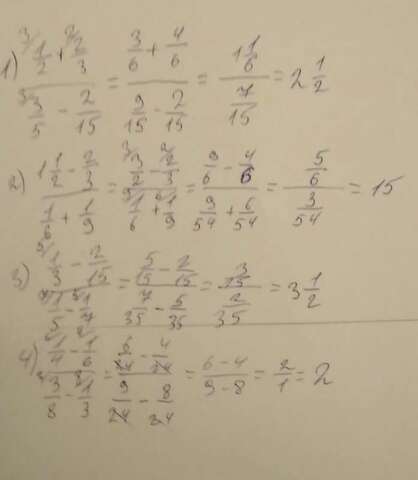 1) (1/2 + 2/3) / (3/5 - 2/15) = (3/6 + 4/6) / (9/15 - 2/15) = (1 1/6) / (7/15) = 2 1/2
2) (1 1/2 - 2/3) / (1/6 + 1/9) = (3/2 - 2/3) / (1/6 + 1/9) = (9/6 - 4/6) / (9/54 + 6/54) = (5/6) / (3/54) = 15
3) (1/3 - 2/15) / (1/5 - 1/7) = (5/15 - 2/15) / (7/35 - 5/35) = (3/15) / (2/35) = 3 1/2
4) (1/4 - 1/6) / (3/8 - 1/3) = (6/24 - 4/24) / (9/24 - 8/24) = (6-4) / (9-8) = 2/1 = 2